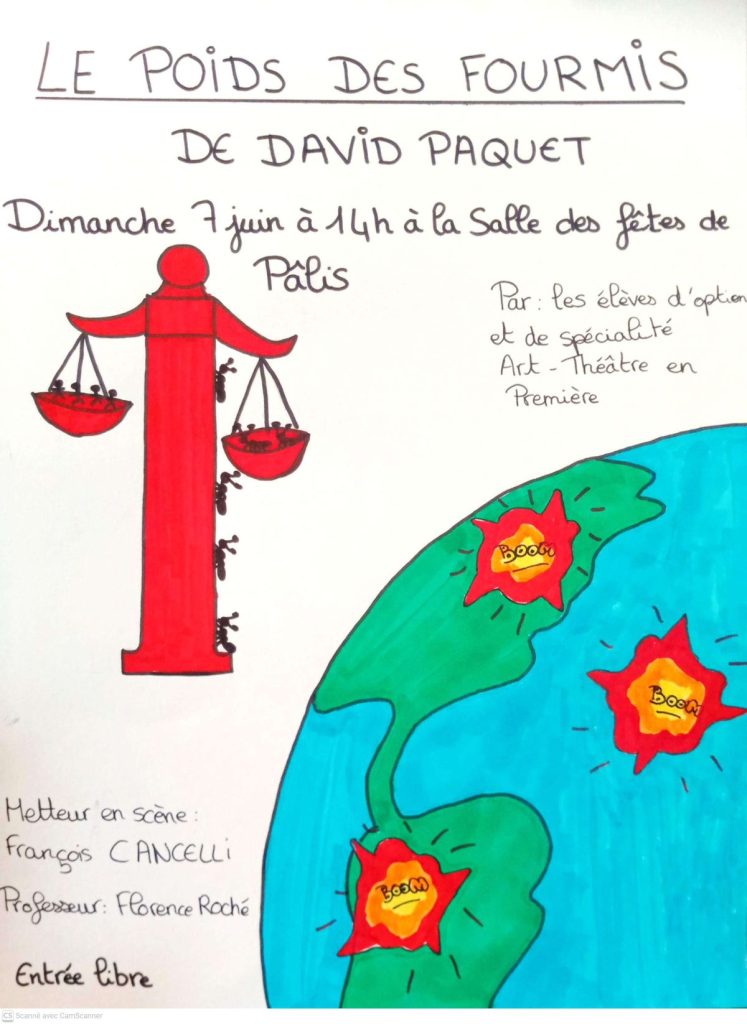 LE POIDS DES FOURMIS
DE DAVID PAQUET
Dimanche 7 juin à 14h à la Salle des fêtes de
Pâlis
Par : les élèves d'option
et de spécialité
Art - Théâtre en
Première
BOOM
BOOM
BOOM
Metteur en scène :
François CANCELLI
Professeur : Florence Roché
Entrée libre
CS Scanné avec CamScanner